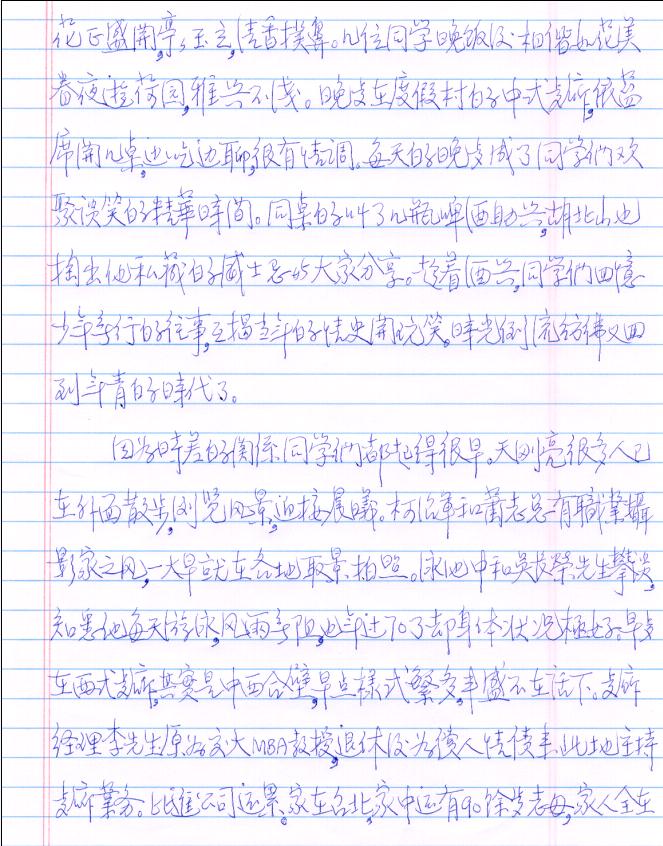 花正盛開,亭亭玉立,清香撲鼻。几位同学晚饭后相偕如花美
眷夜遊荷园,雅兴不浅。晚歺在度假村的中式歺廳,依舊
席開几桌,边吃边聊,很有情調。每天的晚歺成了同学們欢
聚谈笑的精華時间。同桌的叫了几瓶啤酒助兴,胡北山也
掏出他私藏的威士忌与大家分享。趁着酒兴,同学們回憶
少年時行的往事,互揭当年的情史開玩笑。時光倒流彷彿又回
到年青的時代了。
因为時差的関係同学們都起得很早。天刚亮很多人已
在外面散步,浏览风景,迎接晨曦。柯治軍和蕭老总有職業攝
影家之风,一大早就在各地取景拍照。泳池中和吳茂榮先生攀谈,
知悉他每天游泳,风雨無阻,他年过70了却身体状况極好。早歺
在西式歺廳,其实是中西合壁,早点樣式繁多,丰盛不在话下。歺廳
经理李先生原为交大MBA教授,退休后为債人情債来此地主持
歺廳業务。比進公司运累,家在台北,家中还有90餘岁老母,家人全在